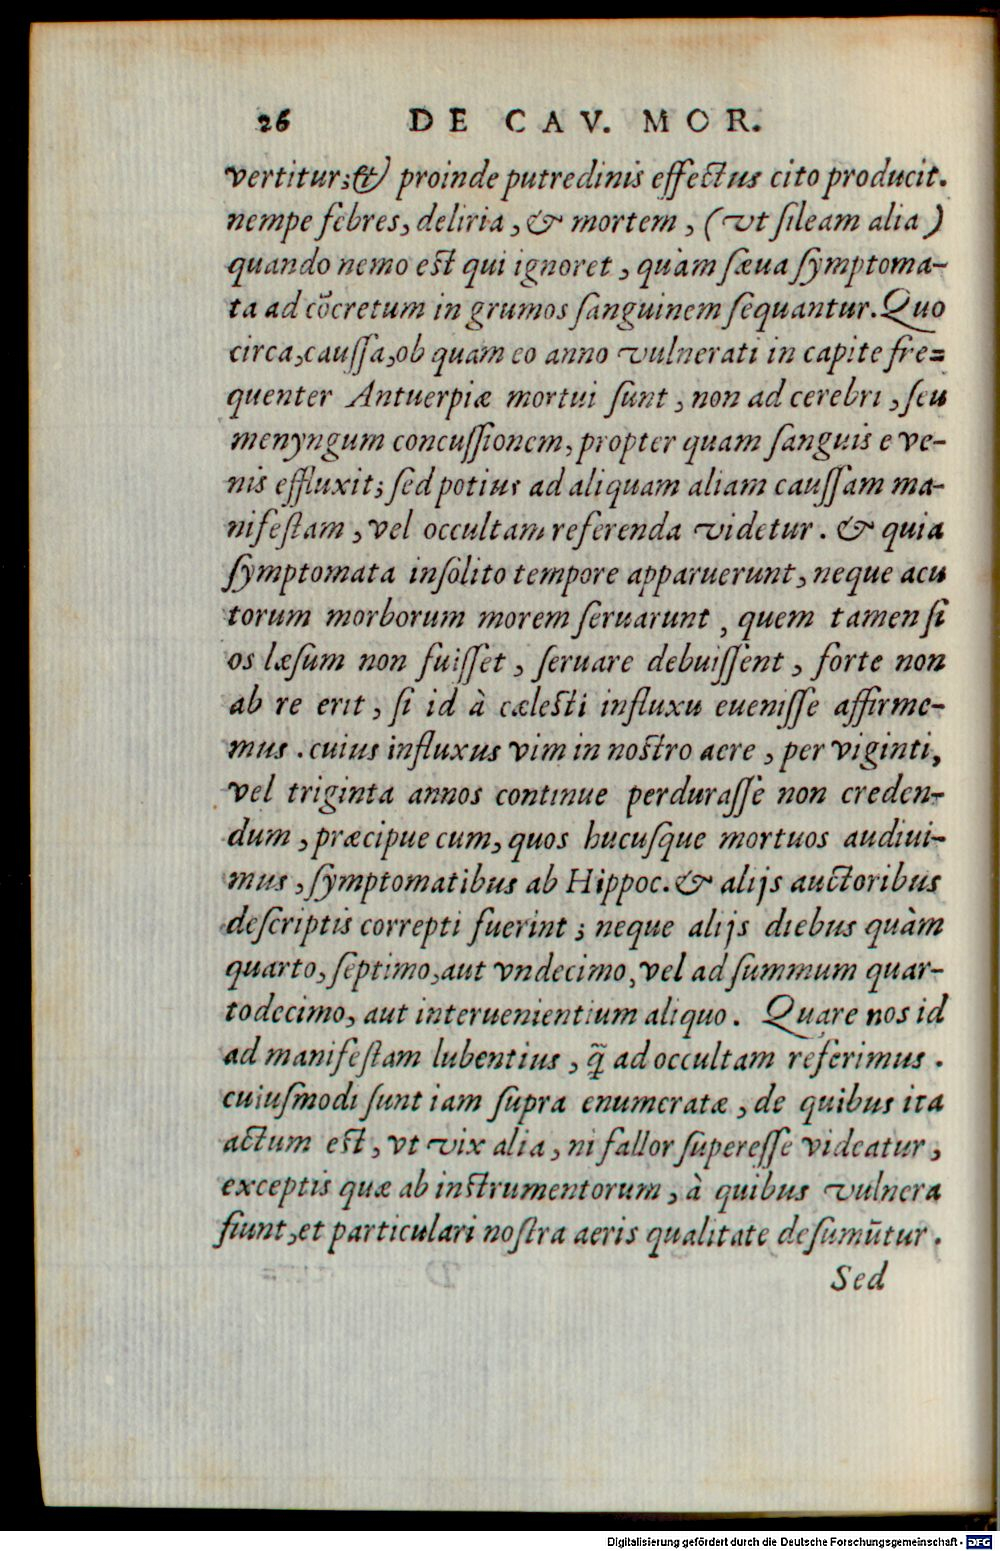 26 DE CAV. MOR.
vertitur; & proinde putredinis effectus cito producit.
nempe febres, deliria, & mortem, (vt sileam alia)
quando nemo est qui ignoret, quàm sæua symptoma-
ta ad cōcretum in grumos sanguinem sequantur. Quo
circa, caussa, ob quam eo anno vulnerati in capite fre=
quenter Antuerpiæ mortui sunt, non ad cerebri, seu
menyngum concussionem, propter quam sanguis e ve-
nis effluxit; sed potius ad aliquam aliam caussam ma-
nifestam, vel occultam referenda videtur. & quia
symptomata insolito tempore apparuerunt, neque acu
torum morborum morem seruarunt, quem tamen si
os læsum non fuisset, seruare debuissent, forte non
ab re erit, si id à cælesti influxu euenisse affirme-
mus. cuius influxus vim in nostro aere, per viginti,
vel triginta annos continue perdurasse non creden-
dum, præcipue cum, quos hucusque mortuos audiui-
mus, symptomatibus ab Hippoc. & alijs auctoribus
descriptis correpti fuerint; neque alijs diebus quàm
quarto, septimo, aut vndecimo, vel ad summum quar-
todecimo, aut interuenientium aliquo. Quare nos id
ad manifestam lubentius, q̃ ad occultam referimus.
cuiusmodi sunt iam supra enumeratæ, de quibus ita
actum est, vt vix alia, ni fallor superesse videatur,
exceptis quæ ab instrumentorum, à quibus vulnera
fiunt, et particulari nostra aeris qualitate desumūtur.
Sed
Digitalisierung gefördert durch die Deutsche Forschungsgemeinschaft - DFG